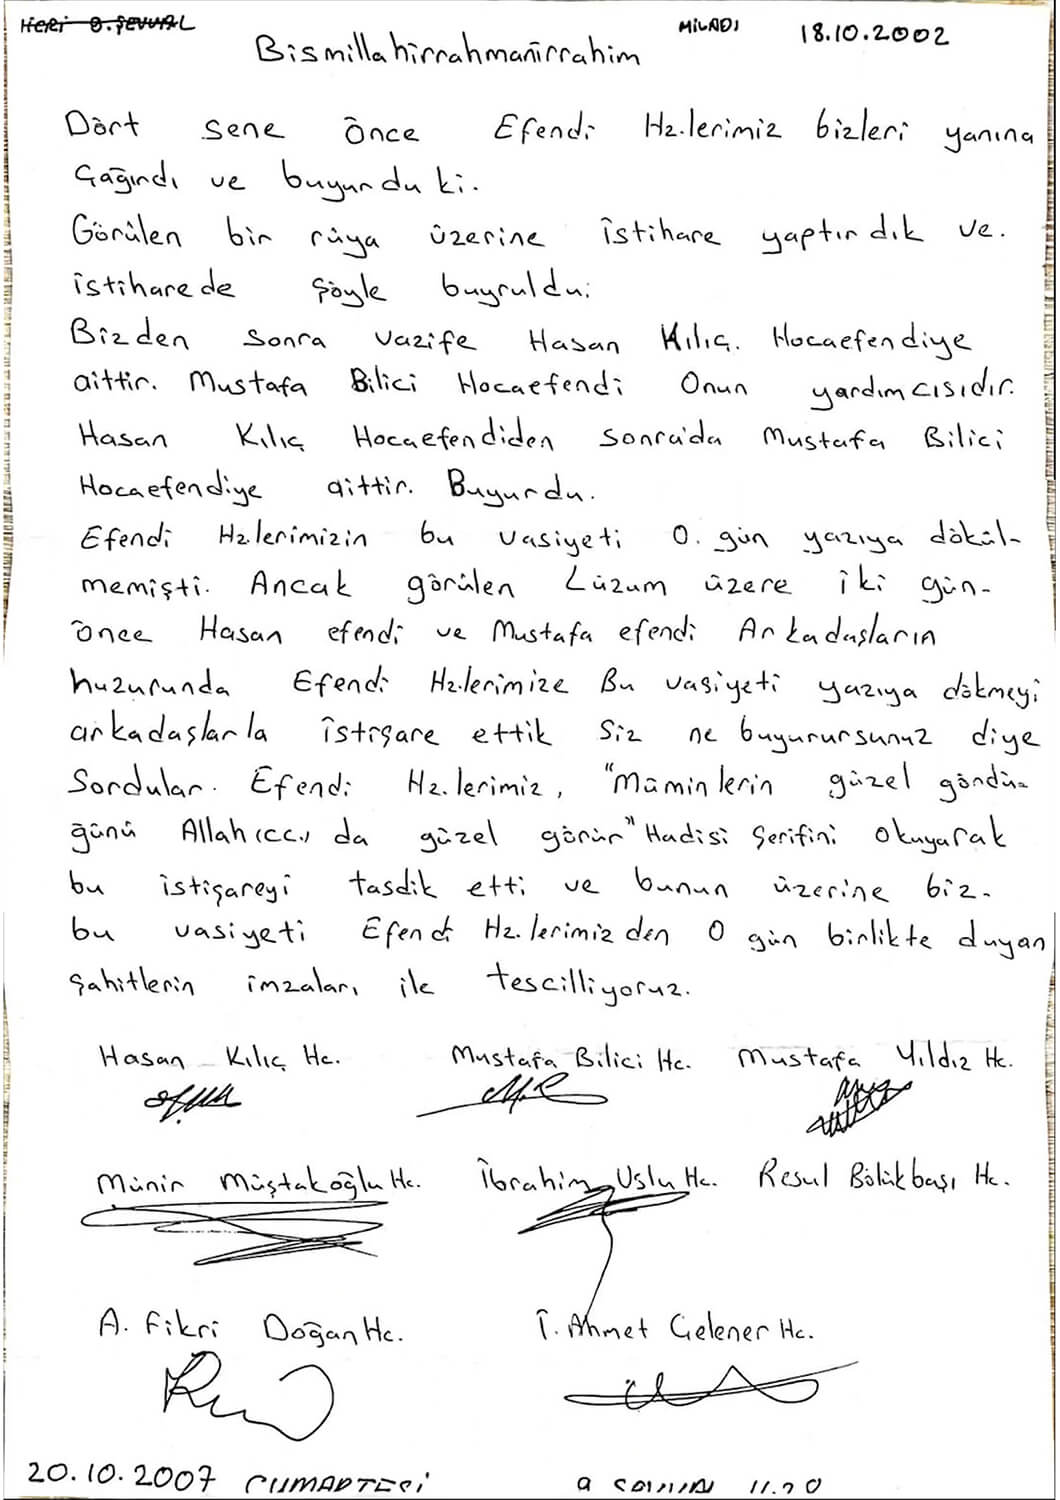 HİCRİ 9.ŞEVVAL MİLADİ 18.10.2002
Bismillahirrahmanirrahim
Dört sene önce Efendi Hz.lerimiz bizleri yanına
çağırdı ve buyurdu ki.
Görülen bir rüya üzerine istihare yaptırdık ve.
istiharede şöyle buyruldu:
Bizden sonra vazife Hasan Kılıç. Hocaefendiye
aittir. Mustafa Bilici Hocaefendi Onun yardımcısıdır.
Hasan Kılıç Hocaefendiden sonra'da Mustafa Bilici
Hocaefendiye aittir. Buyurdu.
Efendi Hz.lerimizin bu vasiyeti O. gün yazıya dökül-
memişti. Ancak görülen Lüzum üzere iki gün-
önce Hasan efendi ve Mustafa efendi Arkadaşların
huzurunda Efendi Hz.lerimize Bu vasiyeti yazıya dökmeyi
arkadaşlarla istişare ettik Siz ne buyurursunuz diye
Sordular. Efendi Hz.lerimiz, "Müminlerin güzel gördü-
ğünü Allah (cc.) da güzel görür" Hadisi Şerifini okuyarak
bu istişareyi tasdik etti ve bunun üzerine biz.
bu vasiyeti Efendi Hz.lerimizden O gün birlikte duyan
Şahitlerin imzaları ile tescilliyoruz.
Hasan Kılıç Hc. Mustafa Bilici Hc. Mustafa Yıldız Hc.
Münir Müştakoğlu Hc. İbrahim Uslu Hc. Resul Bölükbaşı Hc.
A. Fikri Doğan Hc. İ. Ahmet Gelener Hc.
20.10.2007 CUMARTESİ 11.20